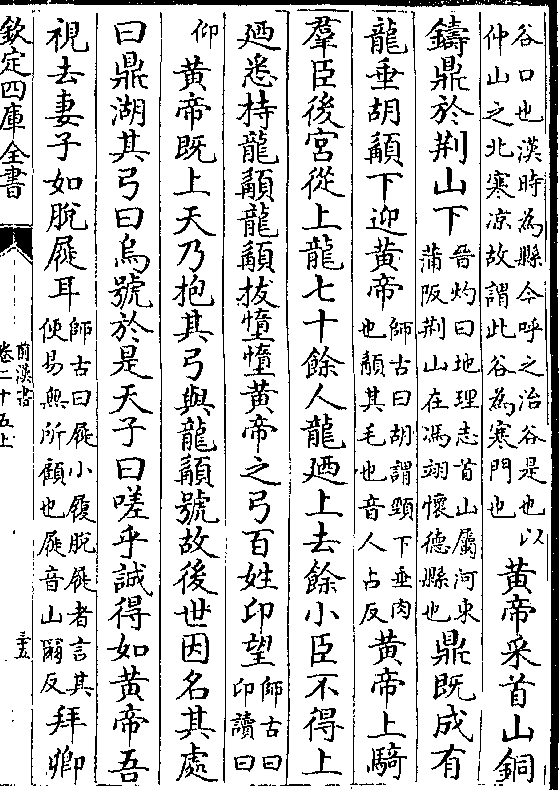 谷口也漢時為縣今呼之治谷是也以
仲山之北寒凉故謂此谷為寒門也
黄帝采首山銅
鑄鼎於荆山下
晉灼曰地理志首山屬河東
蒲阪荆山在馮翊懷德縣也
鼎既成有
龍垂胡䫇下迎黄帝
師古曰胡謂頸下垂肉
也䫇其毛也音人占反
黄帝上騎
羣臣後宫從上龍七十餘人龍廼上去餘小臣不得上
廼悉持龍䫇龍䫇拔墮墮黄帝之弓百姓卬望
師古曰
卬讀曰
仰
黄帝既上天乃抱其弓與龍䫇號故後世因名其處
曰鼎湖其弓曰烏號於是天子曰嗟乎誠得如黄帝吾
視去妻子如脫屣耳
師古曰屣小履脫屣者言其
使易無所顧也屣音山爾反
拜卿
欽定四庫全書
前漢書
卷二十五上
三五